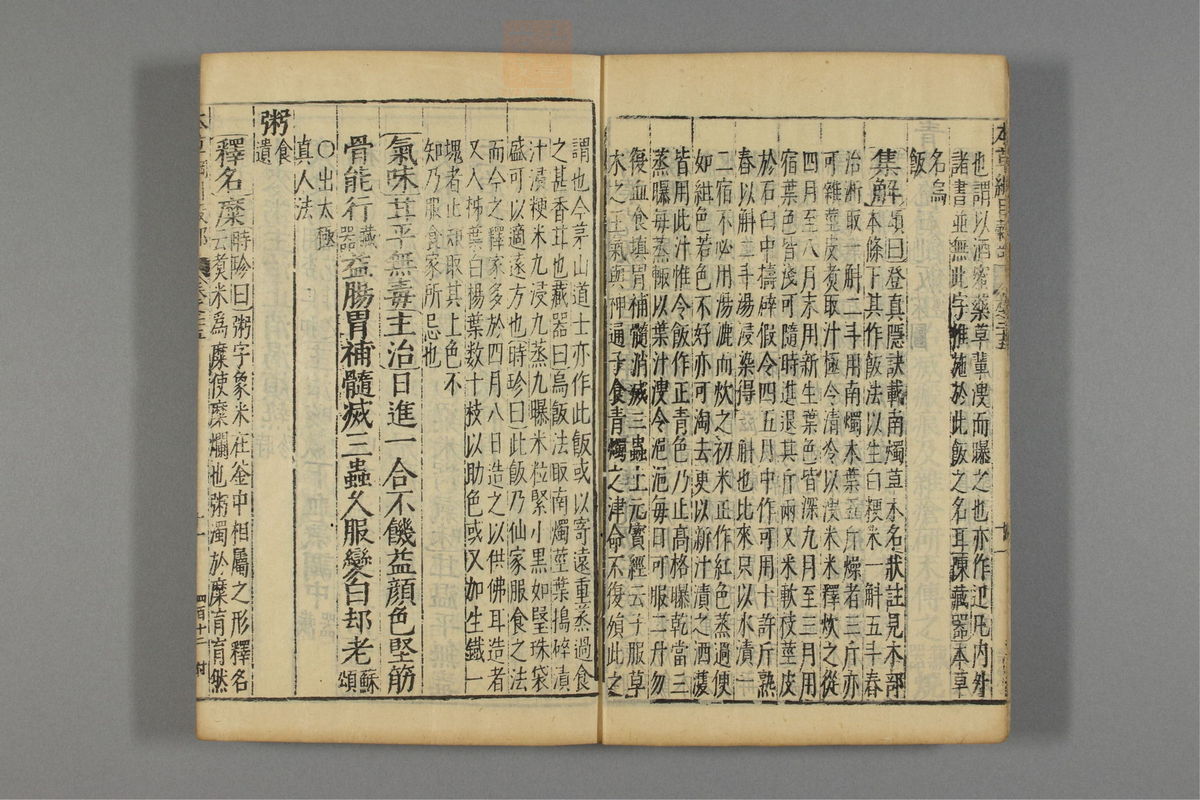 也謂以酒蜜藥草輩溲而曝之也亦作𩚳凡内外
諸書並無此字惟施於此飯之名耳陳藏器本草
名烏
飯
集解頌曰登真隱訣載南燭草木名狀註見木部
本條下其作飯法以生白粳米一斛五斗舂
治淅取一斛二斗用南燭木葉五斤燥者三斤亦
可雜莖皮煮取汁極令清冷以溲米米釋炊之從
四月至八月末用新生葉色皆深九月至三月用
宿葉色皆淺可隨時進退其斤兩又采軟枝莖皮
於石臼中擣碎假令四五月中作可用十許斤熟
舂以斛二斗湯浸染得一斛也比來只以水漬一
二宿不必用湯漉而炊之初米正作紅色蒸過便
如紺色若色不好亦可淘去更以新汁漬之洒濩
皆用此汁惟令飯作正青色乃止高格曝乾當三
蒸曝每蒸輒以葉汁溲令浥浥每日可服二升勿
復血食填胃補髓消滅三蟲上元寶經云子服草
木之王氣與神通子食青燭之津命不復殞此之
謂也今茅山道士亦作此飯或以寄遠重蒸過食
之甚香甘也藏器曰烏飯法取南燭莖葉搗碎漬
汁浸粳米九浸九蒸九曝米粒緊小黑如瑿珠袋
盛可以適遠方也時珍曰此飯乃仙家服食之法
而今之釋家多於四月八日造之以供佛耳造者
又入柹葉白楊葉數十枝以助色或又加生鐵一
塊者止知取其上色不
知乃服食家所忌也
氣味甘平無毒主治日進一合不饑益顔色堅筋
骨能行藏器益腸胃補髓滅三蟲久服變白却老蘇頌
○出太極
真人法
粥食遺
釋名糜時珍曰粥字象米在釜中相屬之形釋名
云煮米爲糜使糜爛也粥濁於糜育育然